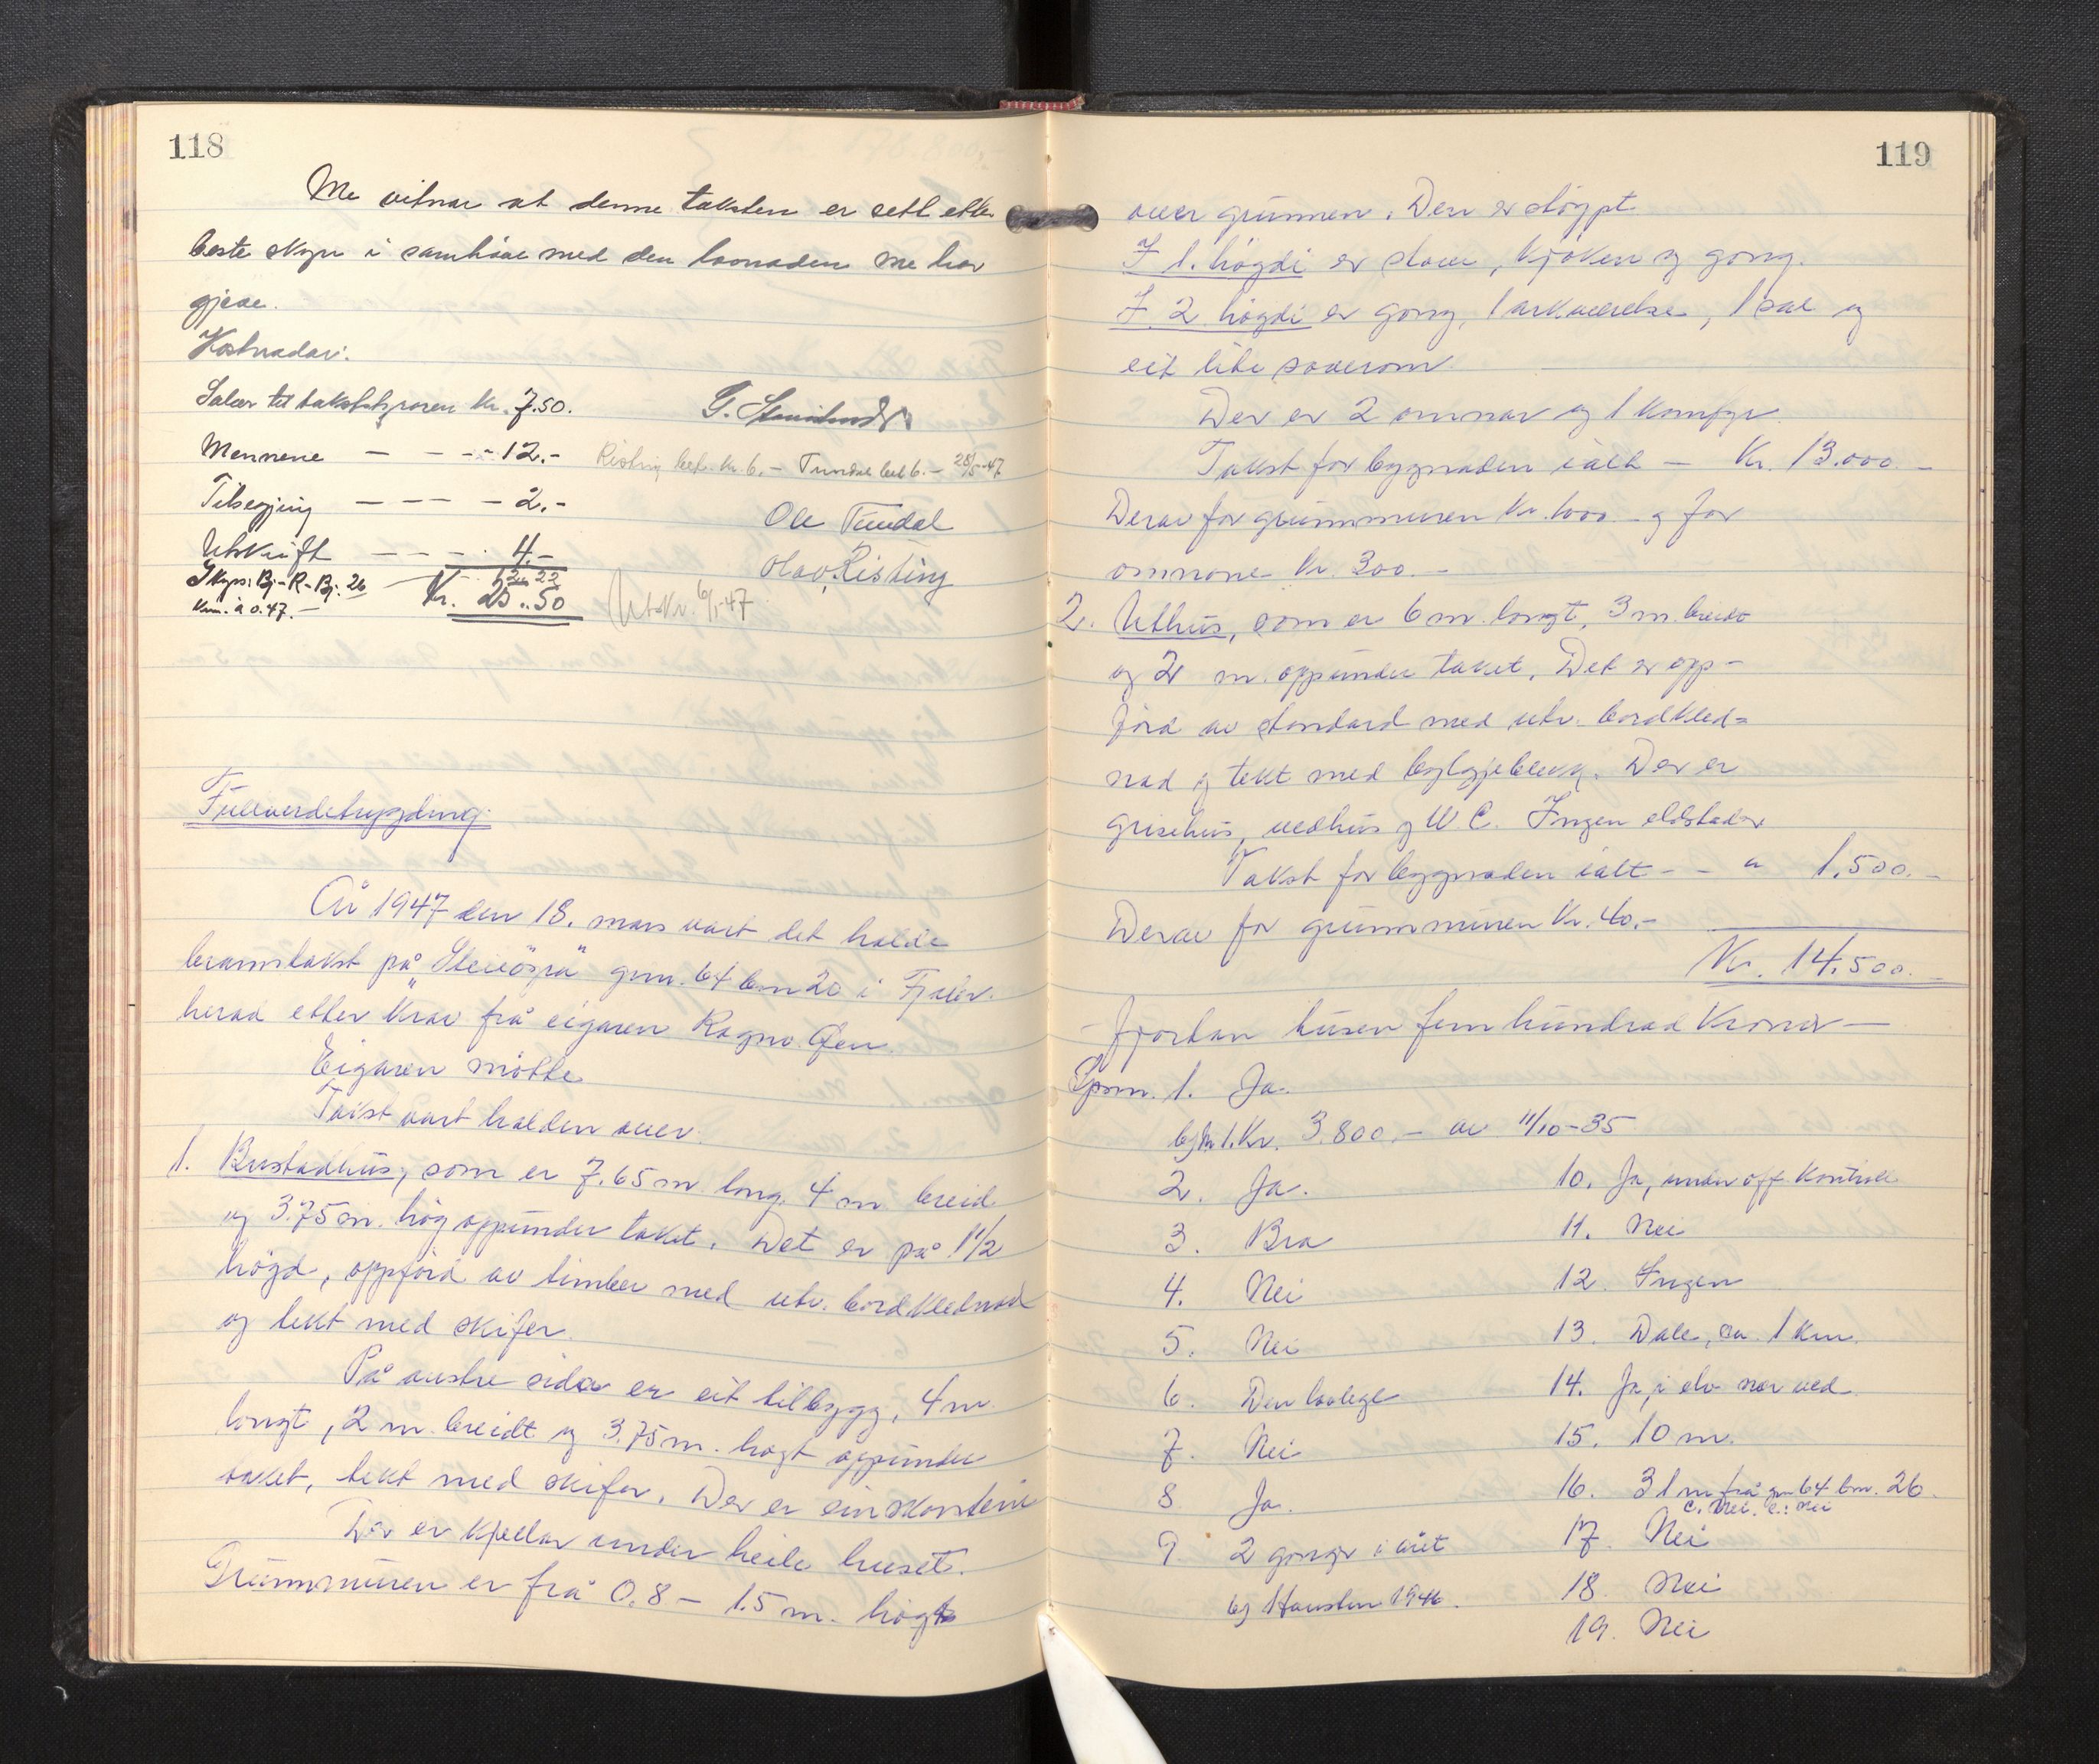 118
Me vitnar at denne taksten er sett etter
beste skyn i samhøve med den lovnaden me har
gjeve.
Kostnadar:
Salær til takststyraren kr. 7.50.
Mennene — — - - 12.-
Risting bet. kr. 6.- Tundal bet 6.- 28/5-47
Tilsegjing — — — - 2.-
Ole Tundal
Utskrift — — — . 4.-
Olav Risting
Skyss: Bj-R-Bj. 26
km. à 0.47.—
Kr. 25.50
Utskr. 6/1-47
Fullverdetrygding.
År 1947 den 18. mars vart det halde
branntakst på "Steiösra" gnr. 64 bnr 20 i Fjaler
herad etter krav frå eigaren Ragnv. Øen.
Eigaren møtte
Takst vart halden over:
1. Bustadhus, som er 7.65 m lang, 4 m breid
og 3.75 m. høg oppunder taket. Det er på 1 1/2
høgd, oppførd av timber med utv. bordklednad
og tekt med skifer.
På austre sida er eit tilbygg, 4 m
langt, 2 m. breidt og 3.75 m. høgt oppunder
taket, tekt med skifer. Der er ein skorstein
Der er kjellar under heile huset.
Grunnmuren er frå 0.8 – 1.5 m. høg
119
over grunnen. Den er støypt
I 1. høgdi er stove, kjøken og gong.
I 2 høgdi er gong, 1 arkværelse, 1 sal og
eit lite soverom.
Der er 2 omnar og 1 komfyr.
Takst for bygnaden ialt — Kr. 13.000.—
Derav for grunnmuren kr. 1000.- og for
omnane kr. 300.-
2. Uthus, som er 6 m. langt, 3 m. breidt
og 2 m. oppunder taket. Det er opp-
førd av standard med utv. bordkled=
nad og tekt med bylgjeblekk. Der er
grisehus, vedhus og W.C. Ingen eldstader
Takst for bygnaden ialt - - " 1.500.—
Derav for grunnmuren kr. 40.-
Kr. 14.500.—
- Fjortan tusen fem hundrad kroner —
Spm. 1. Ja.
bjn 1. Kr. 3.800.- av 11/10-35
2. Ja.
3. Bra
4. Nei
5. Nei
6. Den lovlege
7. Nei
8 Ja.
9. 2 gonger i året
bj Hausten 1946.
10. Ja, under off. kontroll
11. Nei
12. Ingen
13. Dale, ca. 1 km.
14. Ja, i elv nær ved.
15. 10 m.
16. 31 m frå gnr 64 bnr. 26.
c. Nei. e: Nei
17. Nei
18. Nei
19. Nei